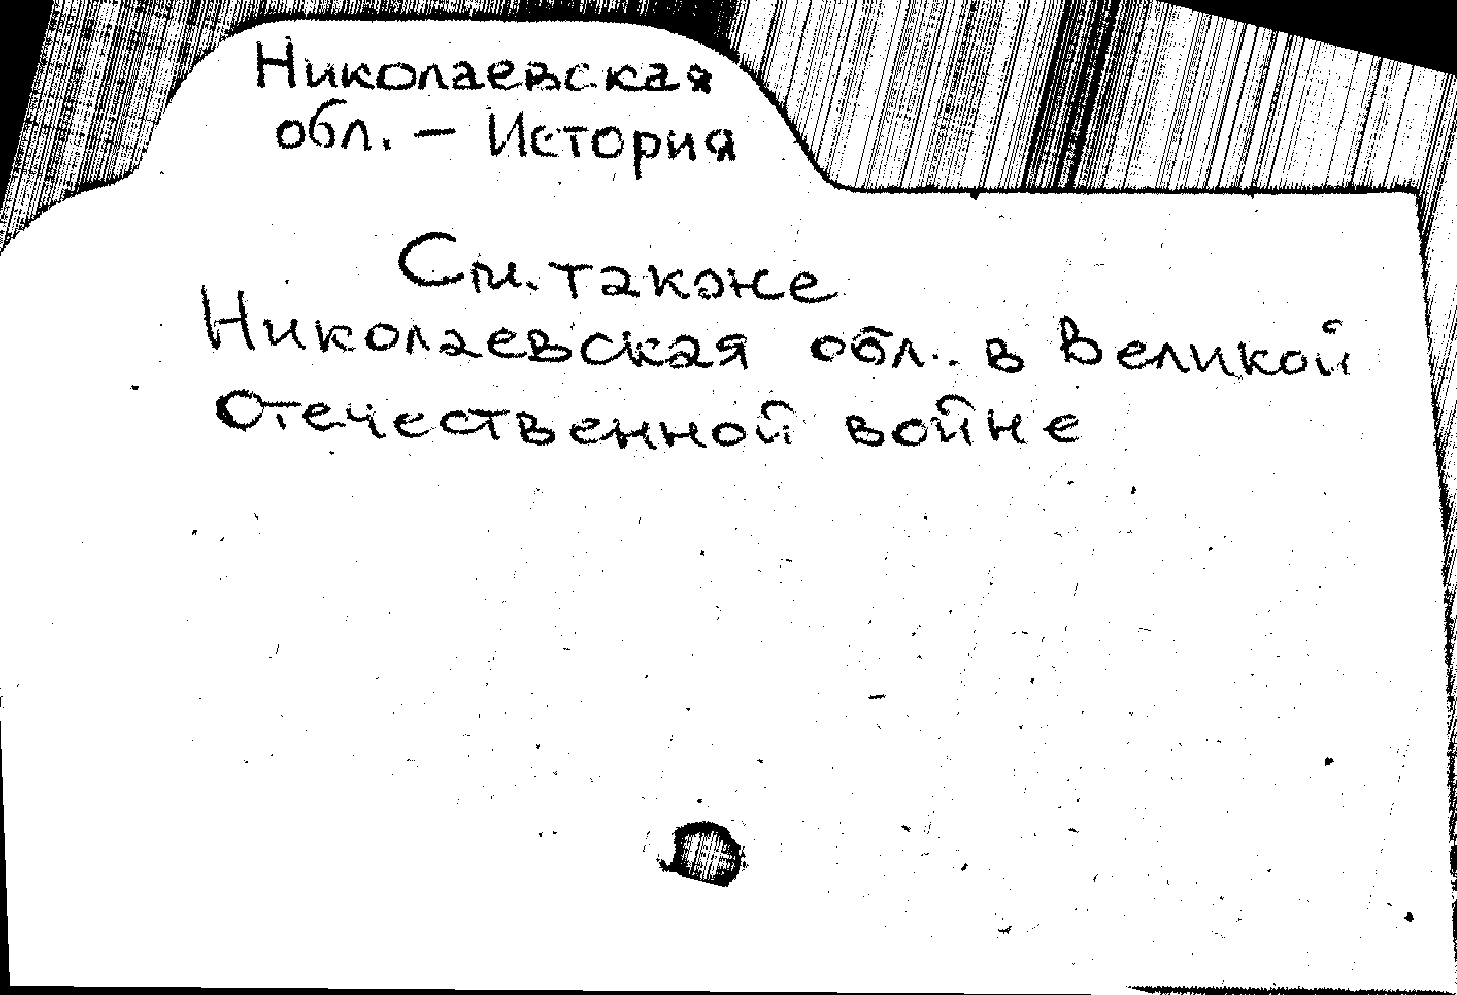 Николаевская
обл. – История
См. также
Николаевская обл. в Великой
Отечественной войне